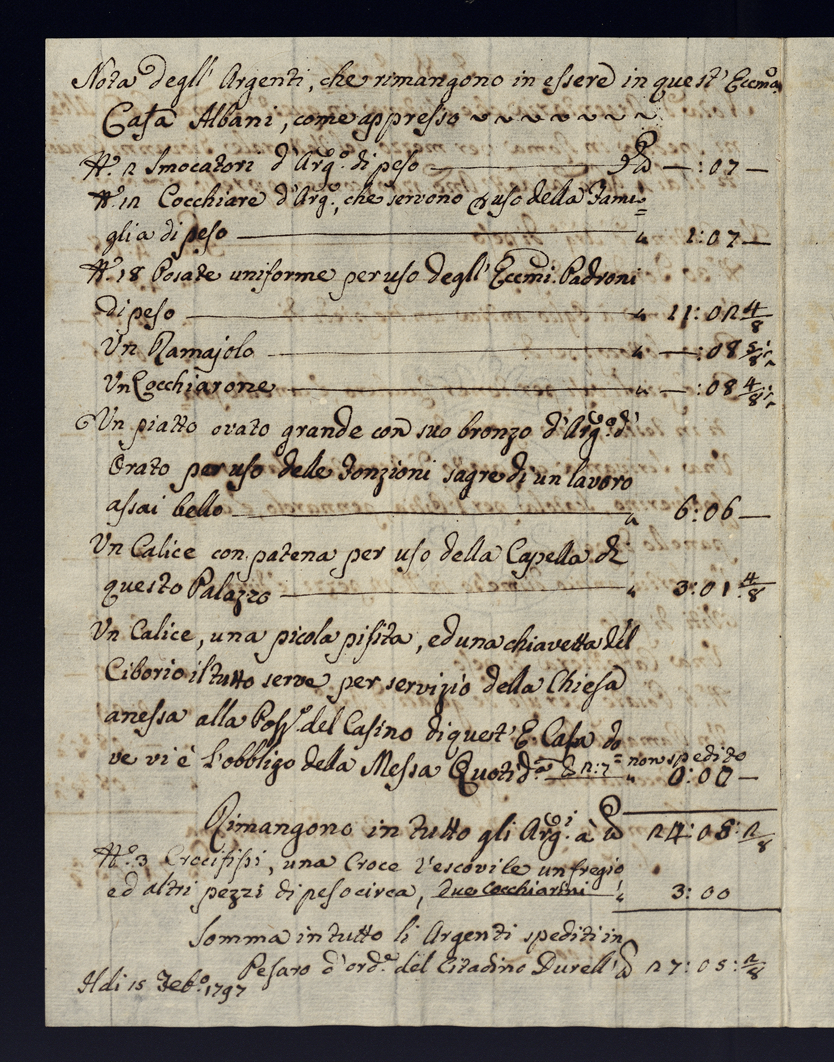 Nota degl' Argenti, che rimangono in essere in quest' Eccma
Casa Albani, come appresso
N.° 2 Smocatori d'Arg.° di peso — : 07 —
N.° 12 Cocchiare d'Arg.°, che servono p uso della Fami=
glia di peso " 1 : 07 —
N.° 18 Posate uniforme per uso degl' Eccmi. Padroni
di peso " 11 : 02 4/8
Un Ramajolo " — : 08 5/8
Un Cocchiarone " — : 08 4/8
Un piatto ovato grande con suo bronzo d'Arg.° d'
Orato per uso delle Fonzioni sagre di un lavoro
assai bello " 6 : 06 —
Un Calice con patena per uso della Capella di
questo Palazzo " 3 : 01 4/8
Un Calice, una picola pisita, ed una chiavetta del
Ciborio il tutto serve per servizio della Chiesa
anessa alla Poss. del Casino di quest' E. Casa do
ve vi è l'obbligo della Messa Quotid.na 2 : 7 = non spedito
" 0 : 00 —
Rimangono in tutto gli Arg.i à 24 : 05 : 2/8
N.° 3 Crocifissi, una Croce l'escovile un fregio
ed altri pezzi di peso circa, due Cocchiarini " 3 : 00
Somma in tutto li Argenti spediti in
Pesaro d'ord.e del Citadino Durell' 27 : 05 : 2/8
A di 15 Feb.° 1797